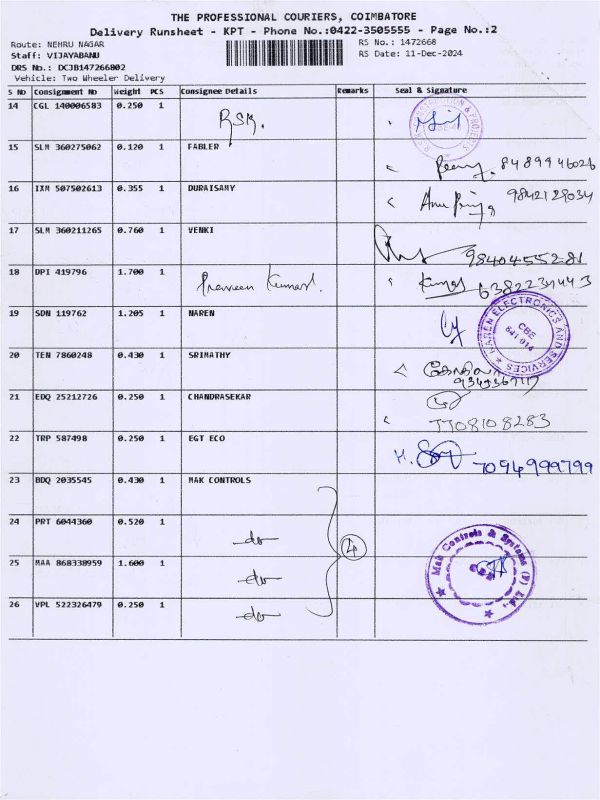 THE PROFESSIONAL COURIERS, COIMBATORE
Delivery Runsheet - KPT - Phone No.:0422-3505555 - Page No.:2
Route: NEHRU NAGAR
RS No.: 1472668
Staff: VIJAYABANU
RS Date: 11-Dec-2024
DRS No.: DCJB147266802
Vehicle: Two Wheeler Delivery
S No Consignment No Weight PCS Consignee Details Remarks Seal & Signature
14 CGL 140006583 0.250 1
15 SLM 360275062 0.120 1 FABLER 8489946026
16 IXM 507502613 0.355 1 DURAISAMY 9842129034
17 SLM 360211265 0.760 1 VENKI 9840455281
18 DPI 419796 1.700 1 Praveen Kumar. Kumar
19 SDN 119762 1.205 1 NAREN NAREN ELECTRONICS AND SERVICES CBE 641 014
20 TEN 7860248 0.430 1 SRIMATHY கோகிலா
21 EDQ 25212726 0.250 1 CHANDRASEKAR 7708108283
22 TRP 587498 0.250 1 EGT ECO 7094999799
23 BDQ 2035545 0.430 1 MAK CONTROLS
24 PRT 6044360 0.520 1 -do- 4
25 MAA 868338959 1.600 1 -do- Mak Controls & Systems (P) Ltd.,
26 VPL 522326479 0.250 1 -do-